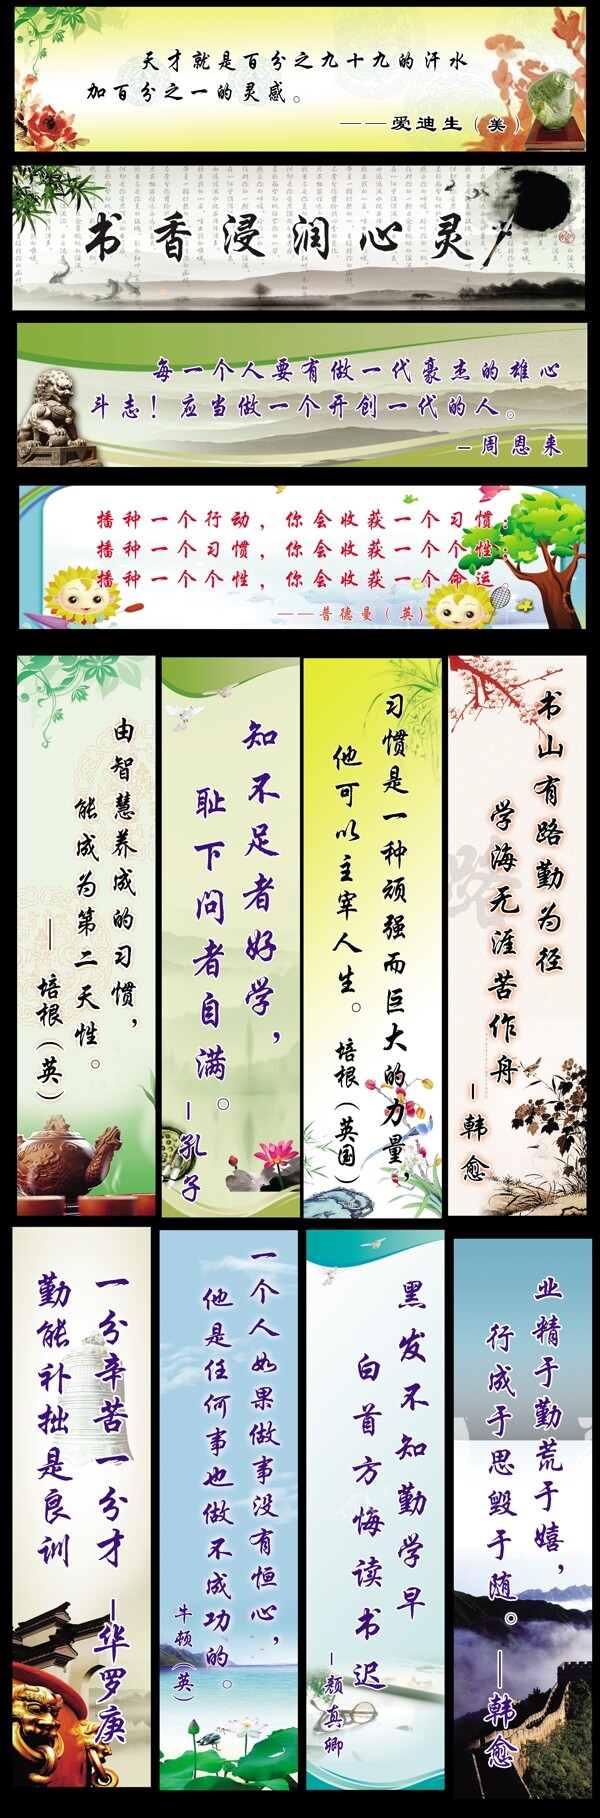 天才就是百分之九十九的汗水
加百分之一的灵感。
——爱迪生（美）
书香浸润心灵
每一个人要有做一代豪杰的雄心
斗志！应当做一个开创一代的人。
–周恩来
播种一个行动，你会收获一个习惯；
播种一个习惯，你会收获一个个性；
播种一个个性，你会收获一个命运。
——普德曼（英）
由智慧养成的习惯，
能成为第二天性。
——培根（英）
知不足者好学，
耻下问者自满。
–孔子
习惯是一种顽强而巨大的力量，
他可以主宰人生。培根（英国）
书山有路勤为径
学海无涯苦作舟
–韩愈
一分辛苦一分才
勤能补拙是良训
–华罗庚
一个人如果做事没有恒心，
他是任何事也做不成功的。
牛顿（英）
黑发不知勤学早
白首方悔读书迟
–颜真卿
业精于勤荒于嬉，
行成于思毁于随。——韩愈